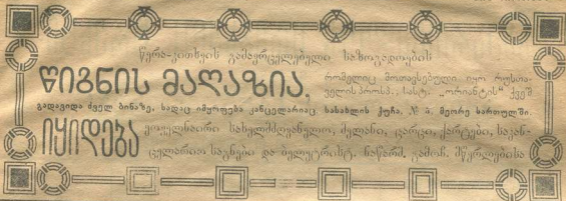 წერა-კითხვის გამავრცელებელი საზოგადოების
წიგნის მაღაზია,
რომელიც მოთავსებული იყო რუსთა-
ველის პროსპ., სასტ. „ორიანტის" ქვეშ
გადავიდა ძველ ბინაზე, სადაც იმყოფება კანცელარიაც სასახლის ქუჩა, № მეორე სართულში.
იყიდება
ყოველგვარი სახელმძღვანელო, მელანი, კარკი, ქარტები, საკან-
ცელარიო საგნები და ბელეტრისტ. ნაწარმ. კამოჩ. მწერლებისა